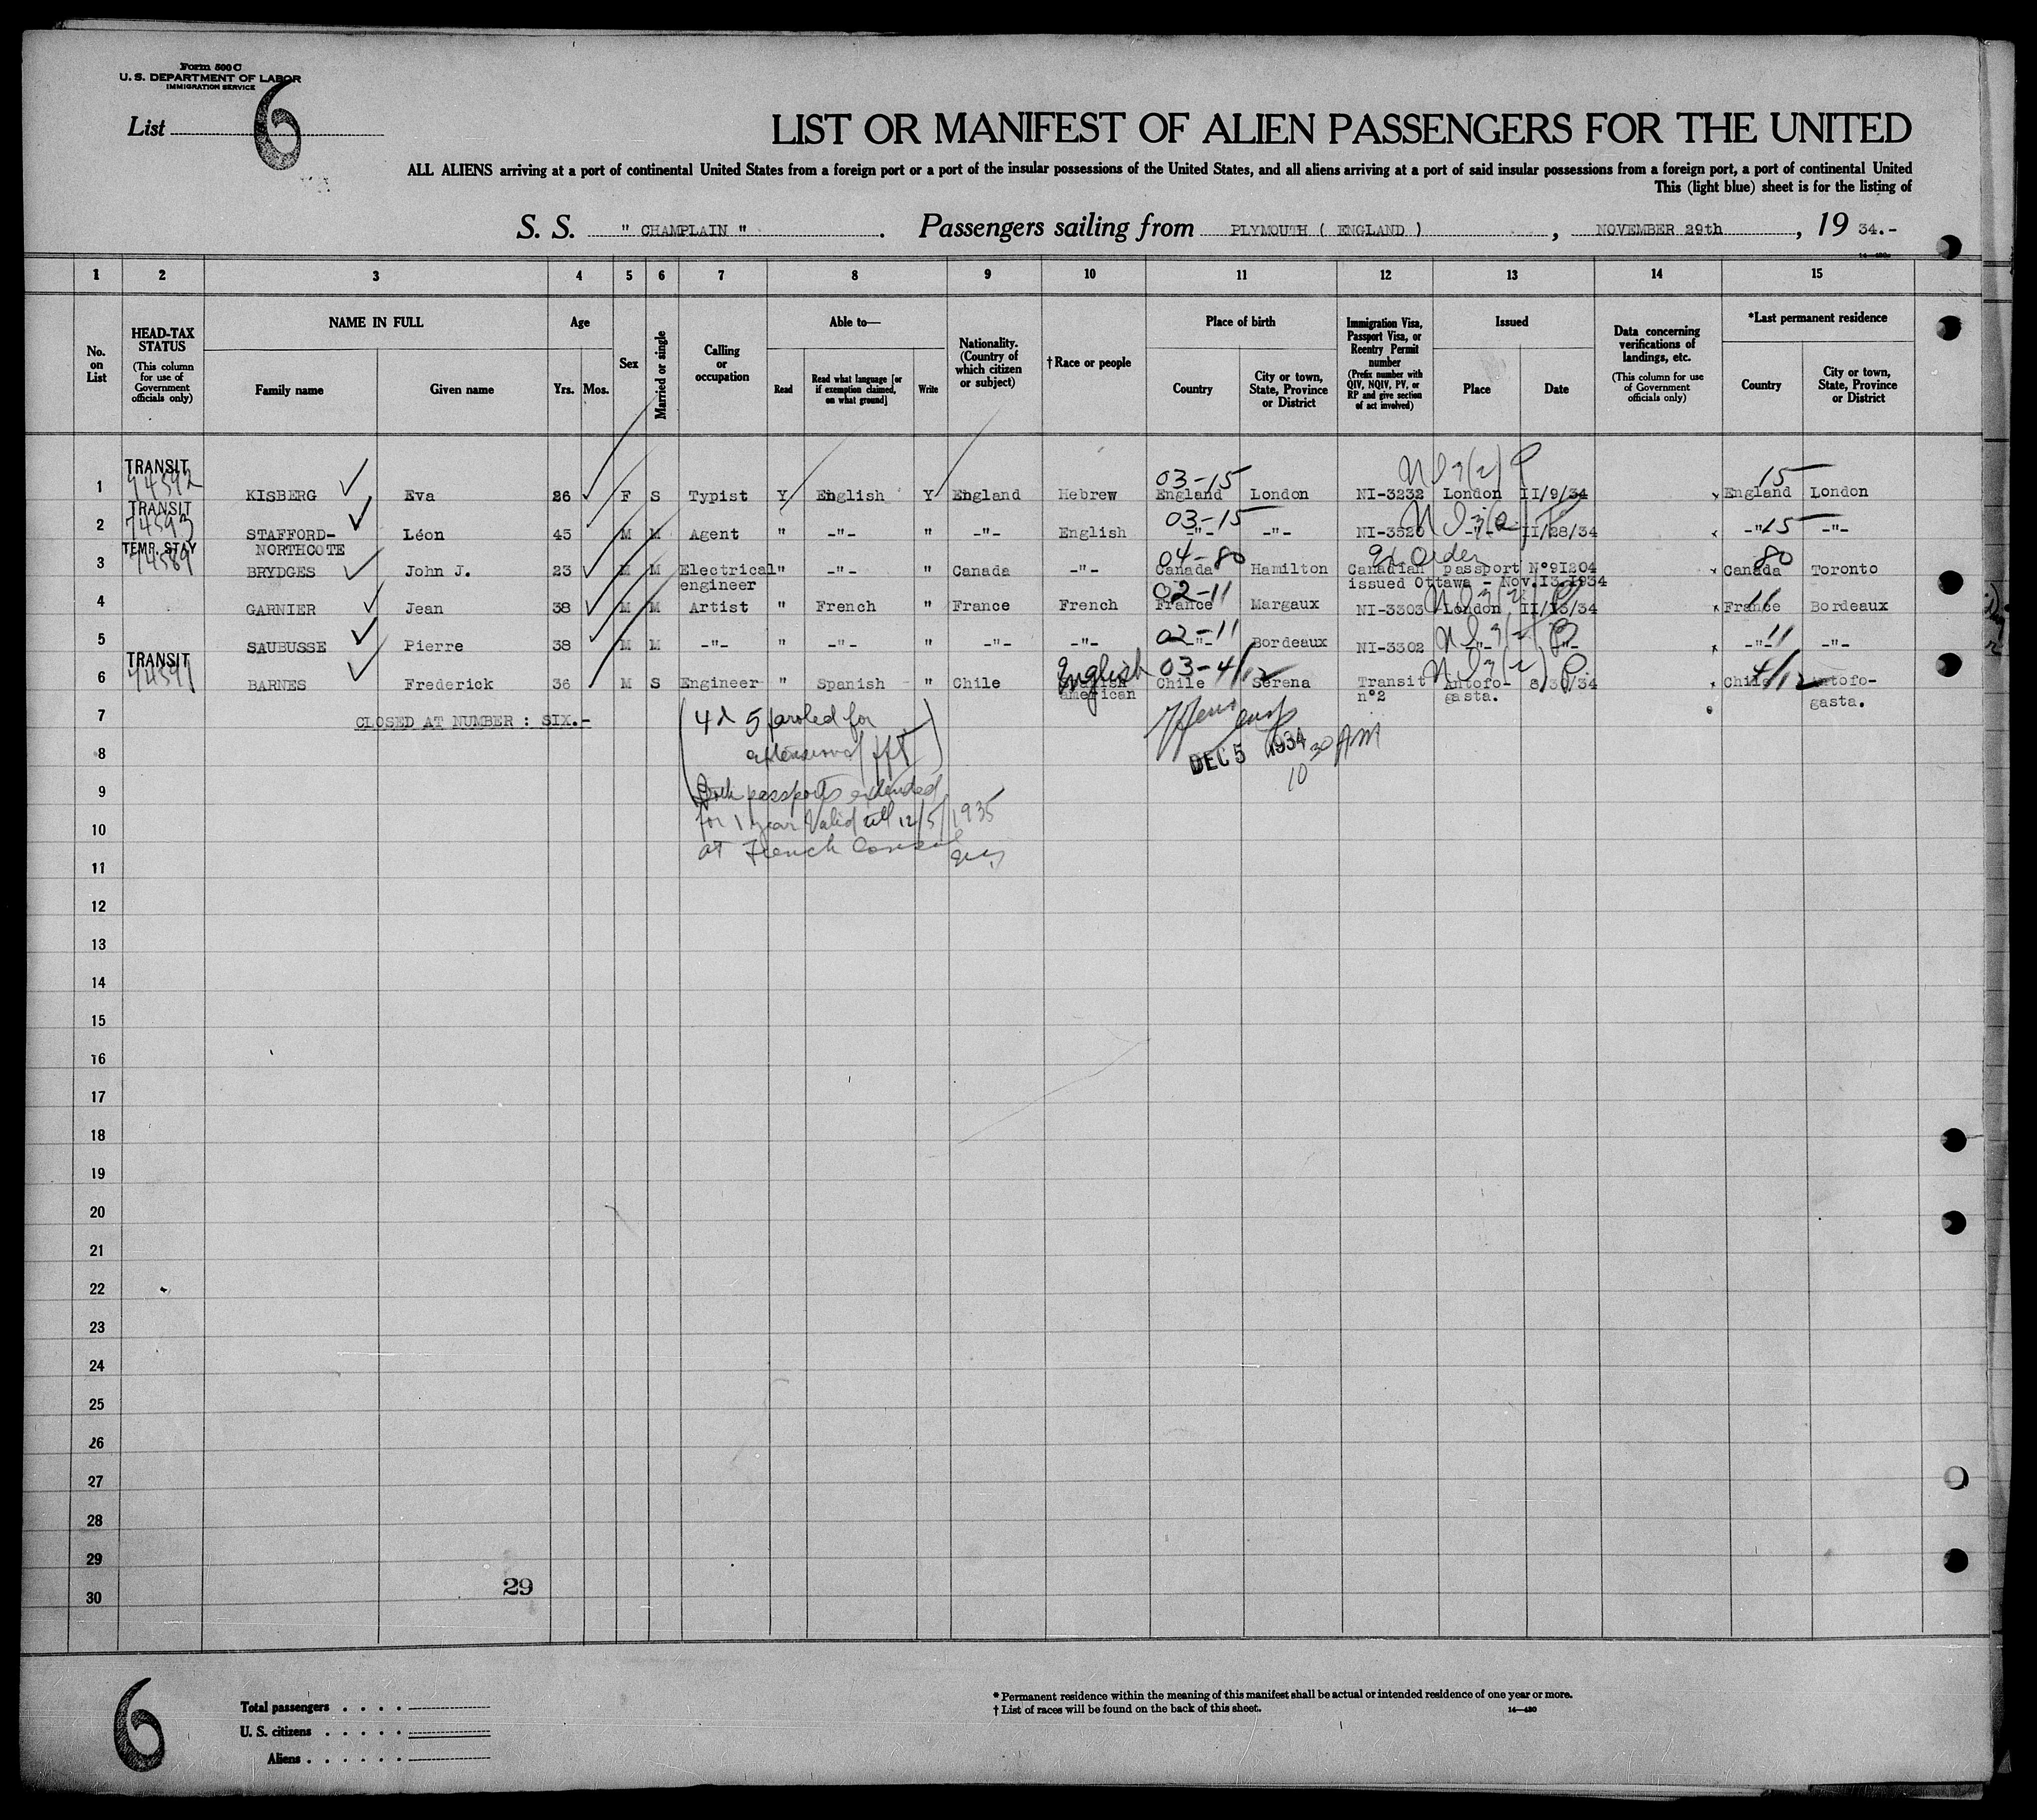 Form 500 C
U. S. DEPARTMENT OF LABOR
IMMIGRATION SERVICE
List 6
LIST OR MANIFEST OF ALIEN PASSENGERS FOR THE UNITED
ALL ALIENS arriving at a port of continental United States from a foreign port or a port of the insular possessions of the United States, and all aliens arriving at a port of said insular possessions from a foreign port, a port of continental United
This (light blue) sheet is for the listing of
S. S. " CHAMPLAIN " . Passengers sailing from PLYMOUTH ( ENGLAND ) , NOVEMBER 29th , 19 34.-
1 2 3 4 5 6 7 8 9 10 11 12 13 14 15
No. on List
HEAD-TAX STATUS
(This column for use of Government officials only)
NAME IN FULL
Family name Given name
Age
Yrs. Mos.
Sex
Married or single
Calling or occupation
Able to—
Read
Read what language [or if exemption claimed, on what ground]
Write
Nationality. (Country of which citizen or subject)
† Race or people
Place of birth
Country
City or town, State, Province or District
Immigration Visa, Passport Visa, or Reentry Permit number
(Prefix number with QIV, NQIV, PV, or RP and give section of act involved)
Issued
Place Date
Data concerning verifications of landings, etc.
(This column for use of Government officials only)
*Last permanent residence
Country
City or town, State, Province or District
TRANSIT 03-15 15
1 74592 KISBERG Eva 26 F S Typist Y English Y England Hebrew England London NI-3232 London II/9/34 England London
TRANSIT 03-15 15
2 74593 STAFFORD- Léon 45 M M Agent " -"- " -"- English -"- -"- NI-3520 -"- II/28/34 -"- -"-
NORTHCOTE
TEMP. STAY 04-80 Ex Order 80
3 74589 BRYDGES John J. 23 M M Electrical " -"- " Canada -"- Canada Hamilton Canadian passport N°91204 Canada Toronto
engineer issued Ottawa - Nov.I3.I934
02-11 11
4 GARNIER Jean 38 M M Artist " French " France French France Margaux NI-3303 London II/I3/34 France Bordeaux
02-11 11
5 SAUBUSSE Pierre 38 M M -"- " -"- " -"- -"- -"- Bordeaux NI-3302 -"- -"- -"- -"-
TRANSIT English 03-4/12 4/12
6 74591 BARNES Frederick 36 M S Engineer " Spanish " Chile Spanish Chile Serena Transit Antofo- 8/30/34 Chile Antofo-
american n°2 gasta. gasta.
7 CLOSED AT NUMBER : SIX.-
4 & 5 paroled for
DEC 5 1934 10 30 AM
8
Both passports extended
9
for 1 year Valid till 12/5/1935
10
at French Consul
11
12
13
14
15
16
17
18
19
20
21
22
23
24
25
26
27
28
29
30
29
6
Total passengers . . . .
U. S. citizens . . . . .
Aliens . . . . . .
* Permanent residence within the meaning of this manifest shall be actual or intended residence of one year or more.
† List of races will be found on the back of this sheet.
14—430